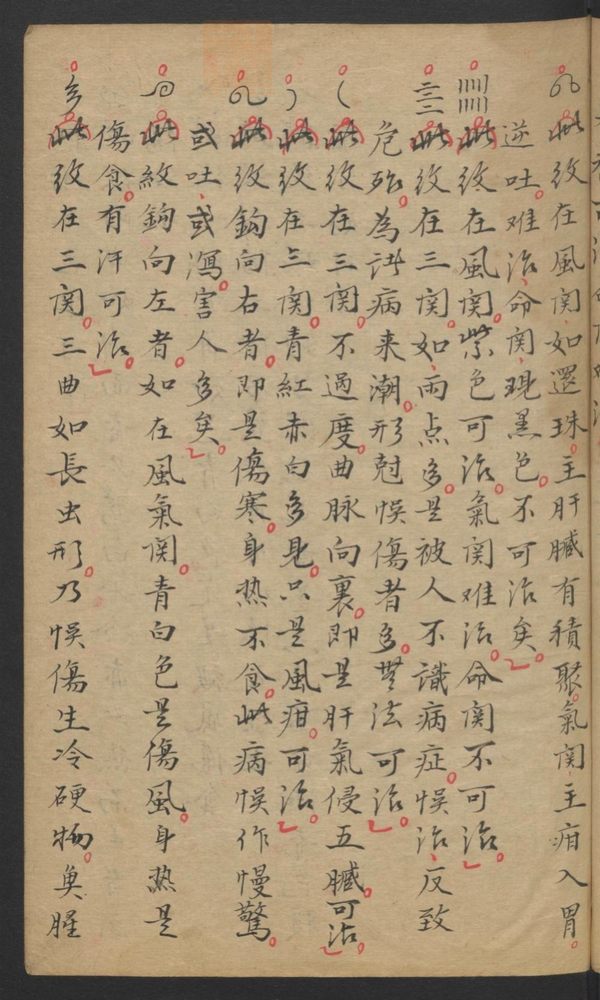 此纹在風関如還珠主肝臟有積聚氣関主疳入胃
逆吐难治命関現黑色不可治矣
此纹在風関紫色可治氣関难治命関不可治
此纹在三関如雨点多是被人不識病症悮治反致
危殆為此病来潮形尅悮傷者多無法可治
此纹在三関不過度曲脉向裏即是肝氣侵五臟可治
此纹在三関青紅赤白多見只是風疳可治
此纹鈎向右者即是傷寒身热不食此病悮作慢驚
或吐或瀉害人多矣
此紋鈎向左者如在風氣関青白色是傷風身热是
傷食有汗可治
此纹在三関三曲如長虫形乃悮傷生冷硬物魚腥